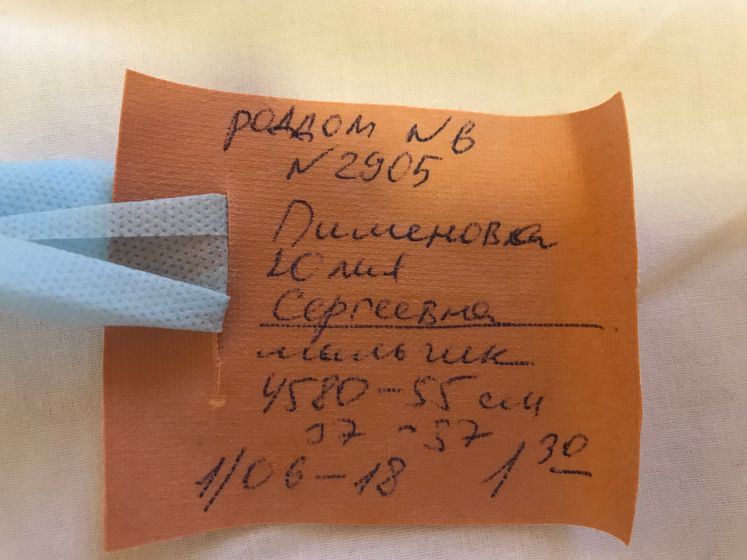 роддом N 6
N 2905
Пименовна
Юлия
Сергеевна
мальчик
4580 - 55 см
37 - 37
1/06 - 18 1 30